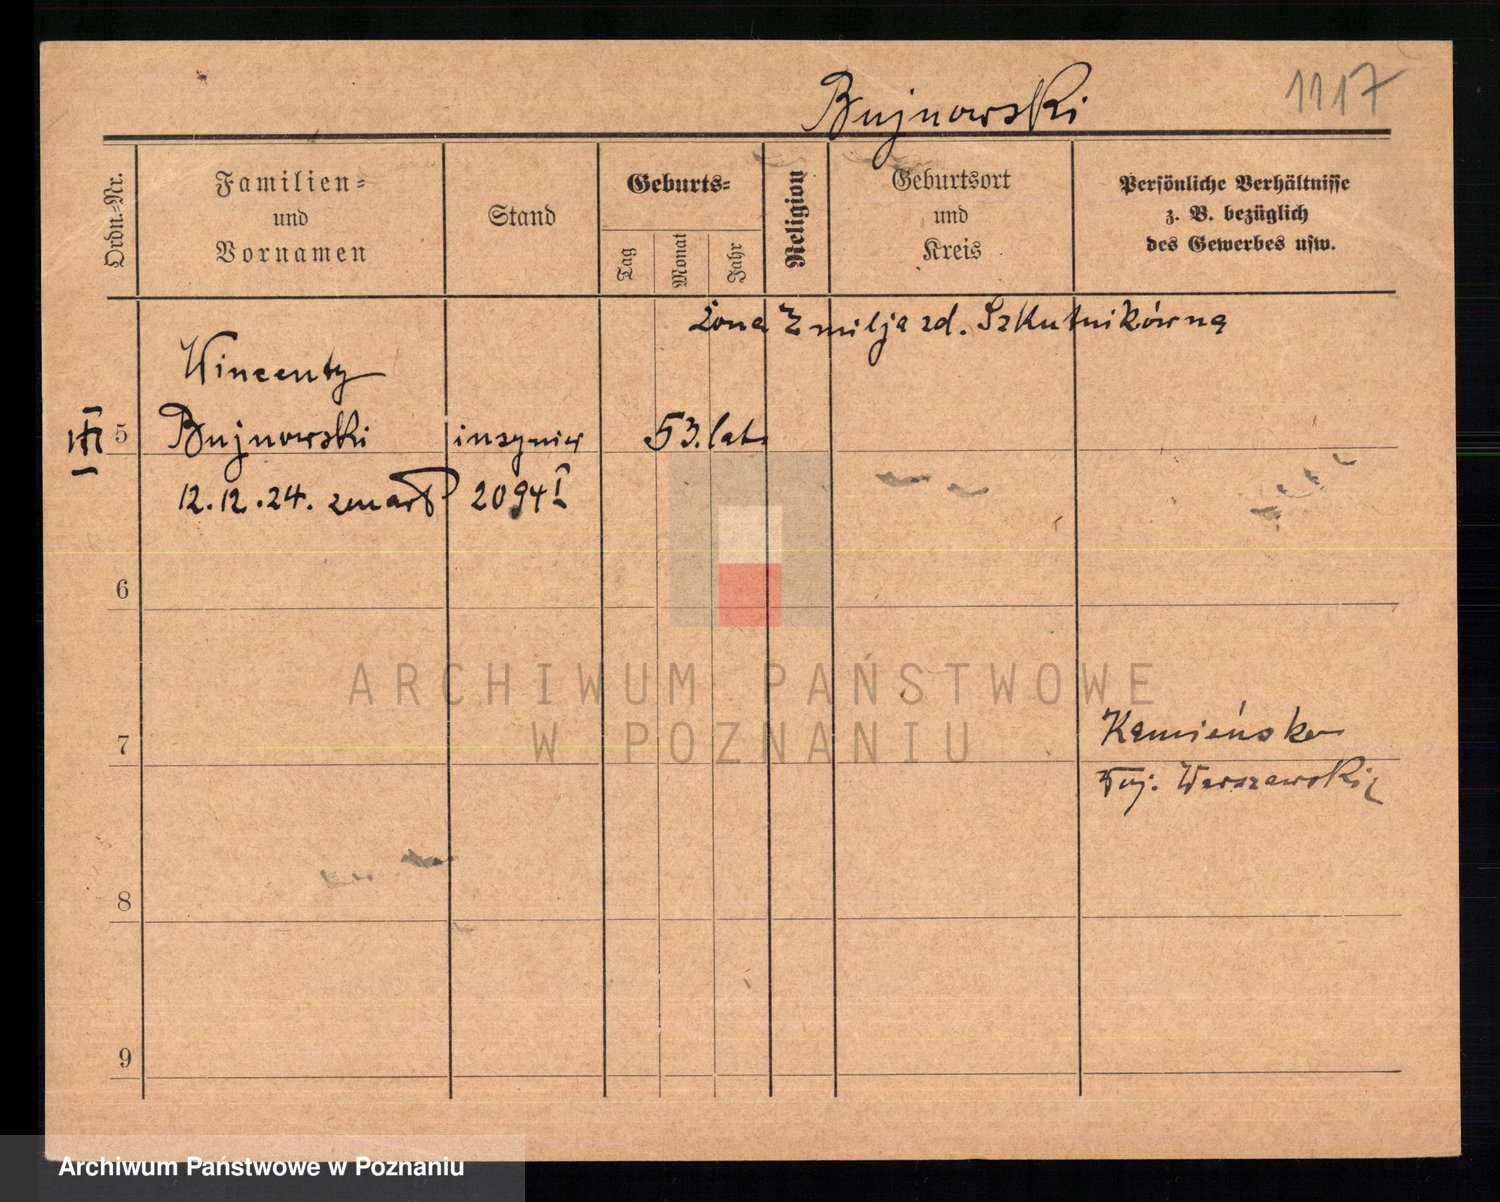 Bujnowski
1117
Ordn.=Nr.
Familien=
und
Vornamen
Stand
Geburts=
Tag
Monat
Jahr
Religion
Geburtsort
und
Kreis
Persönliche Verhältnisse
z. B. bezüglich
des Gewerbes usw.
żona Emilja zd. Szkutnikówną
Wincenty
III
5
Bujnowski
inżynier
53. lat
12.12.24. zmarł
2094 I
6
ARCHIWUM PAŃSTWOWE
W POZNANIU
7
Kamieńsko
woj. Warszawskie
8
9
Archiwum Państwowe w Poznaniu